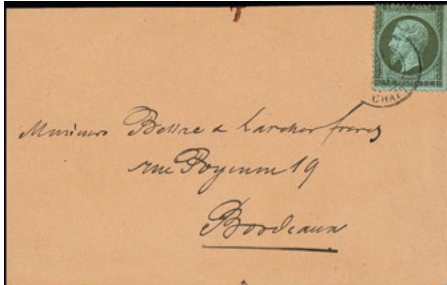 CHA
Messieurs Bosse & Larcher frères
rue Poyenne 19
Bordeaux